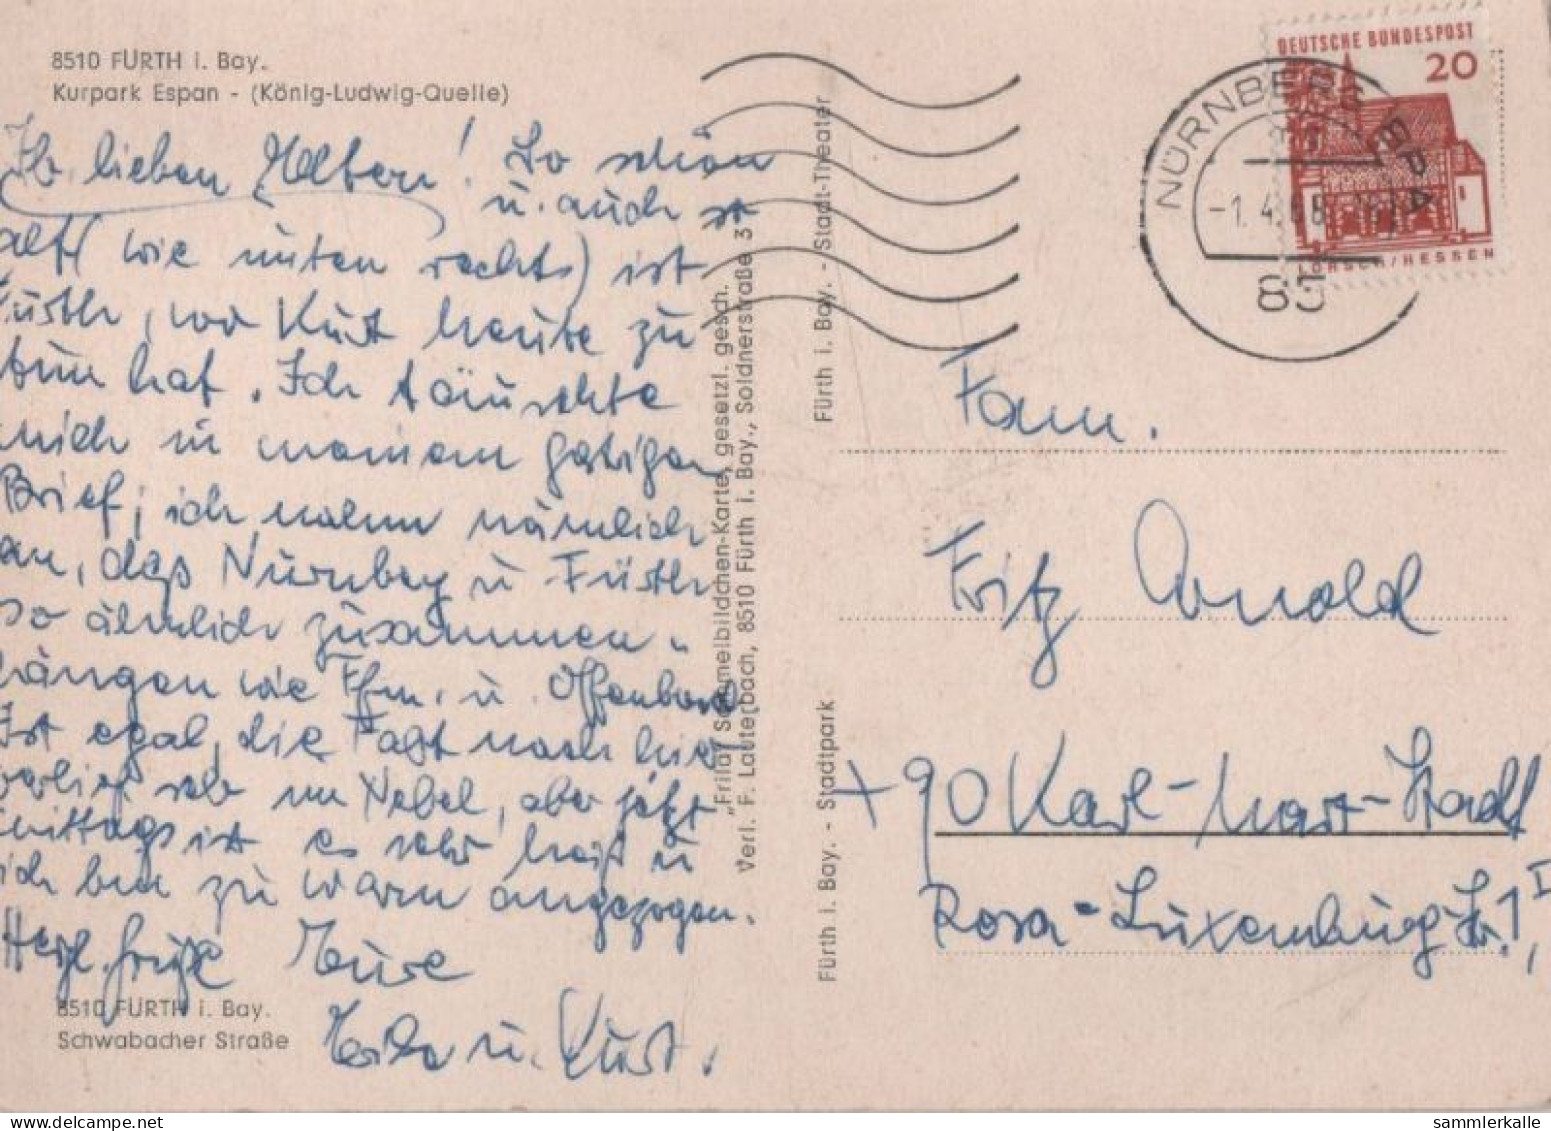 8510 FÜRTH i. Bay.
Kurpark Espan - (König-Ludwig-Quelle)
Ihr lieben Eltern! So schön
u. auch so
alt (wie unten rechts) ist
Fürth, wo Kurt heute zu
tun hat. Ich täuschte
mich in meinem gestrigen
Brief; ich nahm nämlich
an, daß Nürnberg u. Fürth
so ähnlich zusammen-
hängen wie Ffm. u. Offenbach.
Ist egal, die Fahrt nach hier
verlief sehr im Nebel, aber jetzt
mittags ist es sehr heiß u.
ich bin zu warm angezogen.
Herzl. Grüße Eure
u. Kurt.
8510 FÜRTH i. Bay.
Schwabacher Straße
"Frilu" Sammelbildchen-Karte, gesetzl. gesch.
Verl. F. Lauterbach, 8510 Fürth i. Bay., Soldnerstraße 3
Fürth i. Bay. - Stadt-Theater
Fürth i. Bay. - Stadtpark
DEUTSCHE BUNDESPOST
20
LORSCH/HESSEN
NÜRNBERG
-1. 4.
85
Fam.
Fritz Arnold
x 90 Karl-Marx-Stadt
Rosa-Luxemburg-Str. 1
sammlerkalle